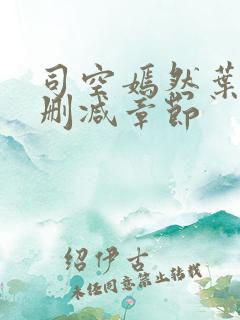 司空嫣然葉
删减章節
绍伊古
未经同意禁止转载